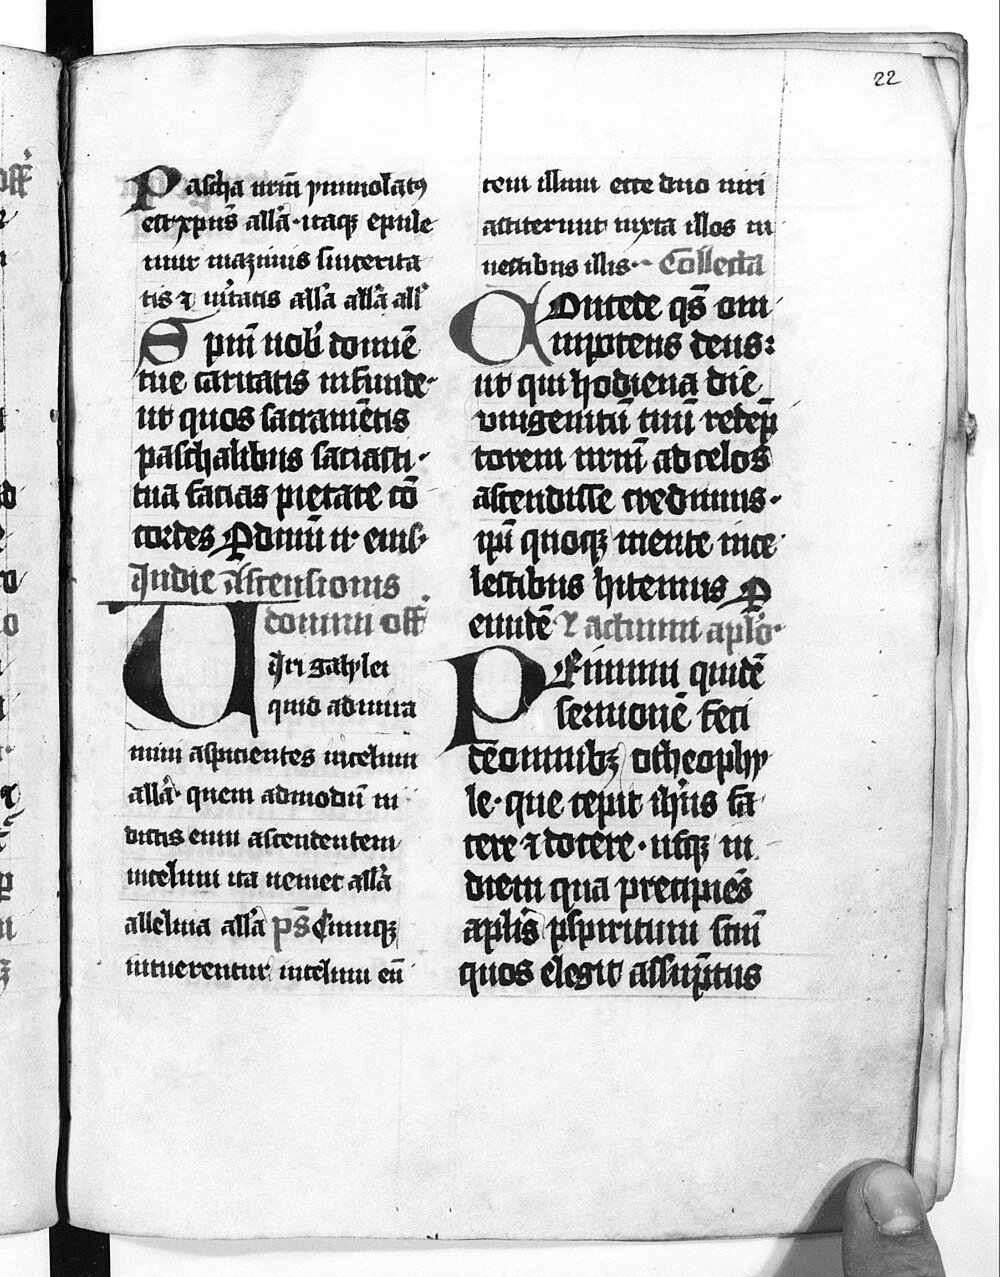 22
Pascha nrm̄ ymmolatꝰ
est xpūs all̄a · itaqꝫ epule
mur mazimis sincerita
tis ⁊ u̾itatis all̄a all̄a all̾
Spm̄ nob̾ domīe
tue caritatis infunde ·
ut quos sacramētis
paschalibus saciasti ·
tua facias pietate cō
cordes Ꝑ dnm̄ ī ei᾽ eius
In die ascensionis
domini off̄
Viri galylei
quid admira
mini aspicientes in celum
all̄a · quem admodū ui
distis eum ascendentem
in celum ita ueniet all̄a
alleluia all̄a ps̄ Cumqꝫ
intuerentur in celum eū
tem illum ecce duo uiri
astiterunt iuxta illos in
uestibus albis · Collecta
Concede qs̄ om
nipotens deus :
ut qui hodierna die
unigenitū tuū redēp
torem nrm̄ ad celos
ascendisse credimus ·
ip̄i quoqꝫ mente in ce
lestibus hitemus Ꝑ
eundē L̄ actuum ap̄lo ·
Primum quidē
sermonē feci
de omnibꝫ o theophy
le · que cepit ih̄us fa
cere ⁊ docere · usqꝫ in
diem qua precipiēs
aplīs ꝑ spiritum scm̄
quos elegit assūptus